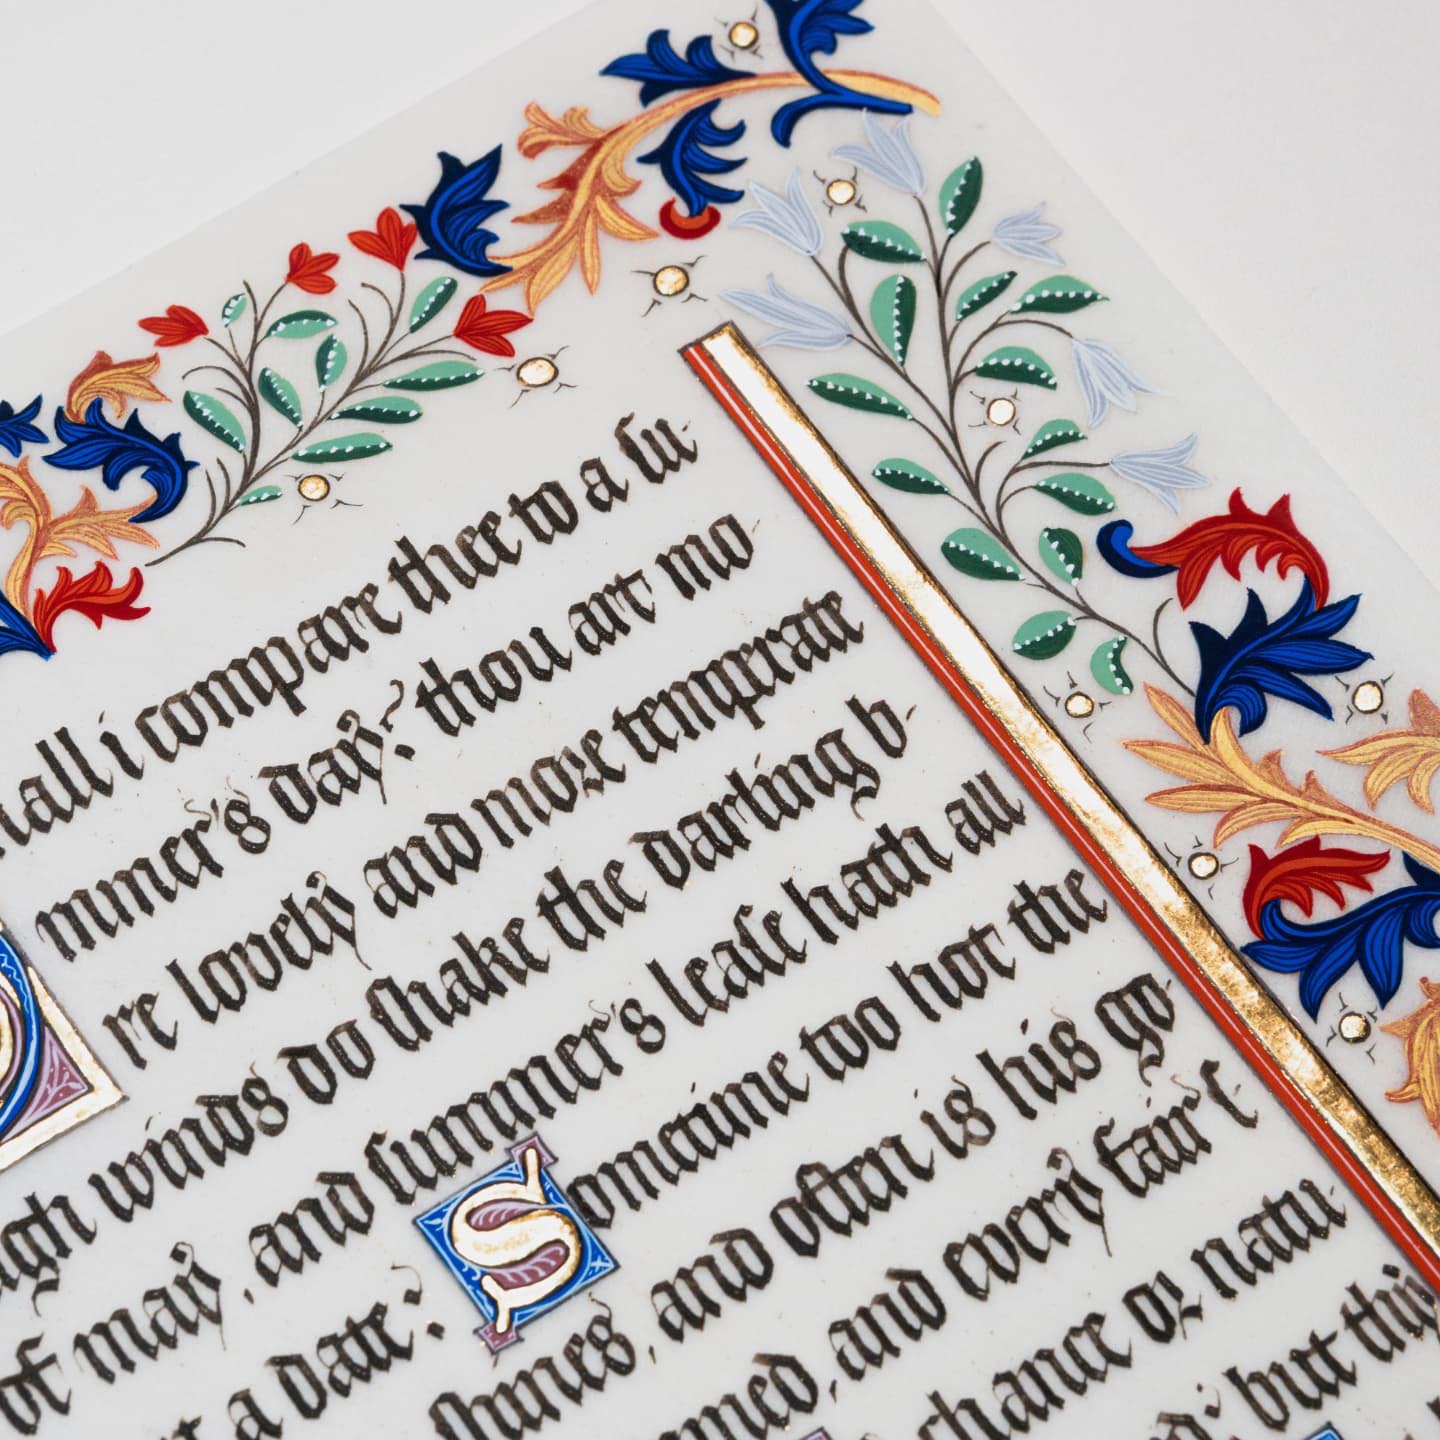 hall i compare thee to a ſu-
mmer's day? thou art mo-
re lovely and more temperate
ugh winds do ſhake the darling b-
of may, and ſummer's leaſe hath all
a date: Sometime too hot the
ſhines, and often is his go-
med, and every fair f-
chance or natu-
: but thi